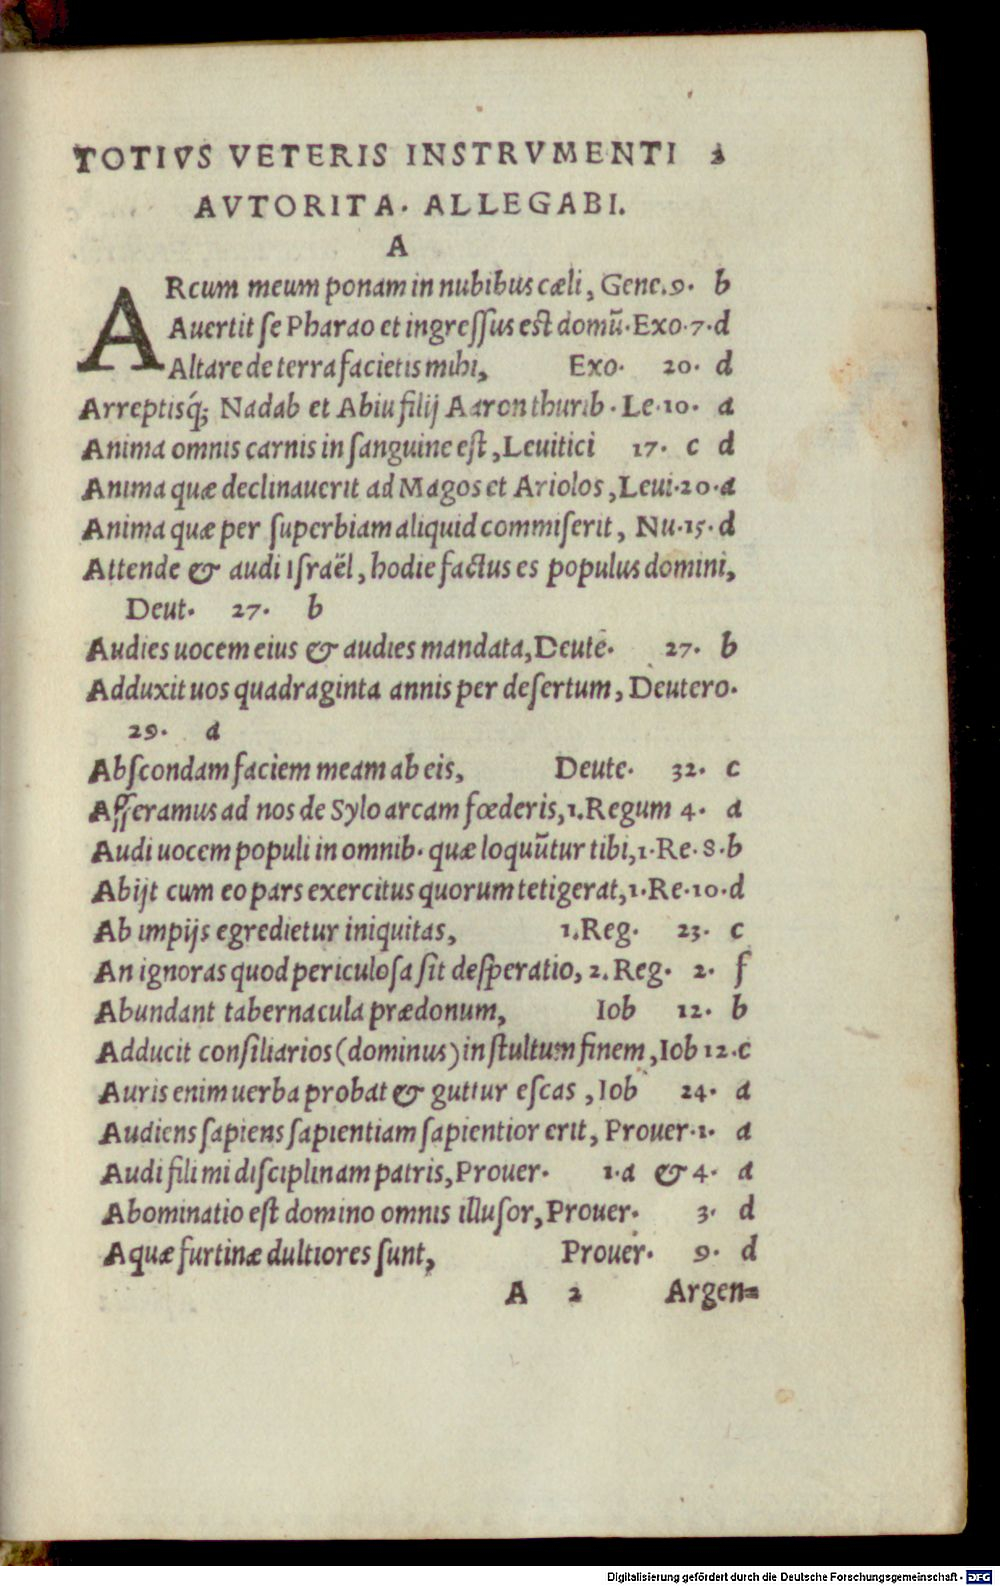 TOTIVS VETERIS INSTRVMENTI
AVTORITA. ALLEGABI.
A
ARcum meum ponam in nubibus cæli, Gene.9. b
Auertit se Pharao et ingressus est domū.Exo.7.d
Altare de terra facietis mihi, Exo. 20. d
Arreptisq́; Nadab et Abiu filij Aaron thurib. Le.10. a
Anima omnis carnis in sanguine est, Leuitici 17. c d
Anima quæ declinauerit ad Magos et Ariolos, Leui.20.a
Anima quæ per superbiam aliquid commiserit, Nu.15.d
Attende & audi Israël, hodie factus es populus domini,
Deut. 27. b
Audies uocem eius & audies mandata, Deute. 27. b
Adduxit uos quadraginta annis per desertum, Deutero.
29. a
Abscondam faciem meam ab eis, Deute. 32. c
Afferamus ad nos de Sylo arcam fœderis, 1.Regum 4. a
Audi uocem populi in omnib. quæ loquūtur tibi, 1.Re.8.b
Abijt cum eo pars exercitus quorum tetigerat, 1.Re.10.d
Ab impijs egredietur iniquitas, 1.Reg. 23. c
An ignoras quod periculosa sit desperatio, 2. Reg. 2. f
Abundant tabernacula prædonum, Iob 12. b
Adducit consiliarios (dominus) in stultum finem, Iob 12.c
Auris enim uerba probat & guttur escas, Iob 24. a
Audiens sapiens sapientiam sapientior erit, Prouer.1. a
Audi fili mi disciplinam patris, Prouer. 1.a & 4. a
Abominatio est domino omnis illusor, Prouer. 3. d
Aquæ furtinæ dultiores sunt, Prouer. 9. d
A 2 Argen=
Digitalisierung gefördert durch die Deutsche Forschungsgemeinschaft - DFG